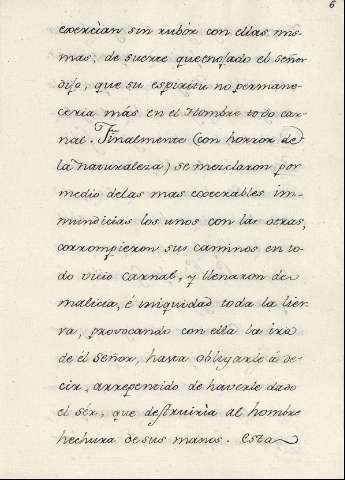 6
exercian sin rubór con ellas mis-
mas; de suerte que enojado el señor
dijo, que su espiritu no permane-
ceria más en el Hombre todo car-
nal. Finalmente (con horror de
la naturaleza) se mezclaron por
medio delas mas execrables im-
mundicias los unos con las otras,
corrompieron sus caminos en to-
do vicio carnal, y llenaron de
malicia, é iniquidad toda la tier-
ra, provocando con ella la irà
de el Señor, hasta obligarle á de-
cir, arrepentido de haverle dado
el sér, que destruiria al hombre
hechura de sus manos. Esta